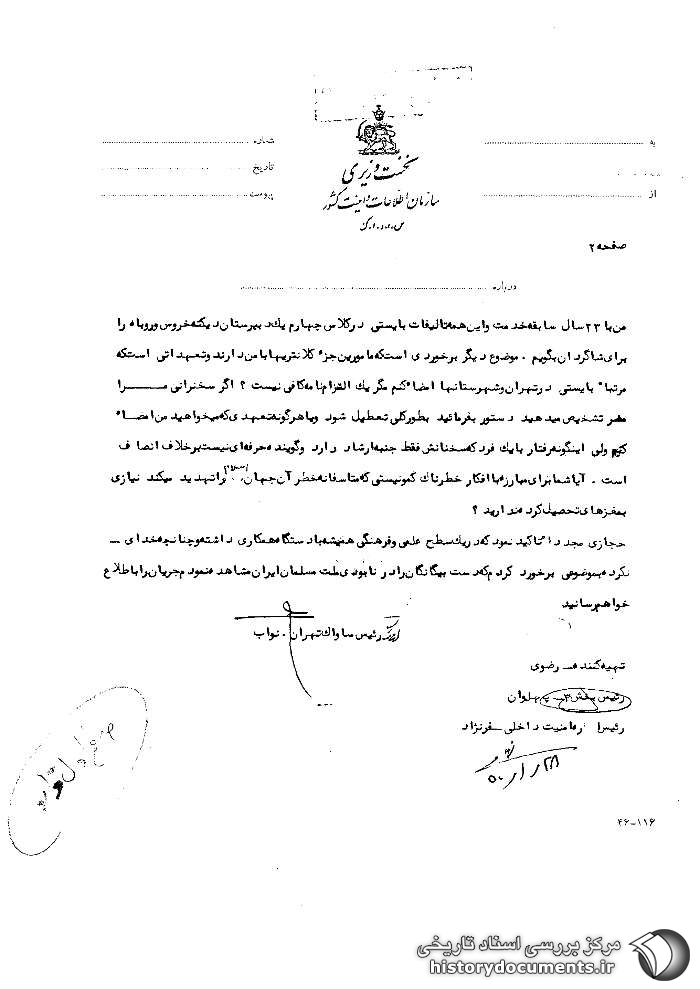 به
شماره
تاریخ
از
پیوست
نخست وزیری
سازمان اطلاعات و امنیت کشور
س.ا.و.ا.ک
صفحه ۲
درباره
من با ۲۳ سال سابقه خدمت و این همه تالیفات بایستی در کلاس چهارم یک دبیرستان دیکته خروس و روباه را
برای شاگردان بگویم . موضوع دیگر برخوردی است که مامورین جزء کلانتریها با من دارند و تعهداتی است که
مرتباً بایستی در تهران و شهرستانها امضاء کنم مگر یک التزام نامه کافی نیست ؟ اگر سخنرانی مرا
مضر تشخیص میدهید دستور بفرمائید بطور کلی تعطیل شود و یا هرگونه تعهدی که میخواهید من امضاء
کنم ولی اینگونه رفتار با یک فرد که سخنانش فقط جنبه ارشاد دارد و گوینده حرفه ای نیست بر خلاف انصاف
است . آیا شما برای مبارزه با افکار خطرناک کمونیستی که متاسفانه خطر آن جهان اسلام را تهدید میکند نیازی
بمغزهای تحصیل کرده ندارید ؟
حجازی مجدداً تاکید نمود که در یک سطح علمی و فرهنگی همیشه با دستگاه همکاری داشته و چنانچه خدای ـ
نکرده بموضوعی برخورد کردم که دست بیگانگان را در نابودی ملت مسلمان ایران مشاهده نمودم جریان را باطلاع
خواهم رسانید
رئیس ساواک تهران . نواب
تهیه کننده ـ رضوی
رئیس بخش ۳ـ پهلوان
رئیس اداره امنیت داخلی ـ فرنژاد
۲۸ ر ۱ ر ۵۰
۴۶-۱۱۶
مرکز بررسی اسناد تاریخی
historydocuments.ir